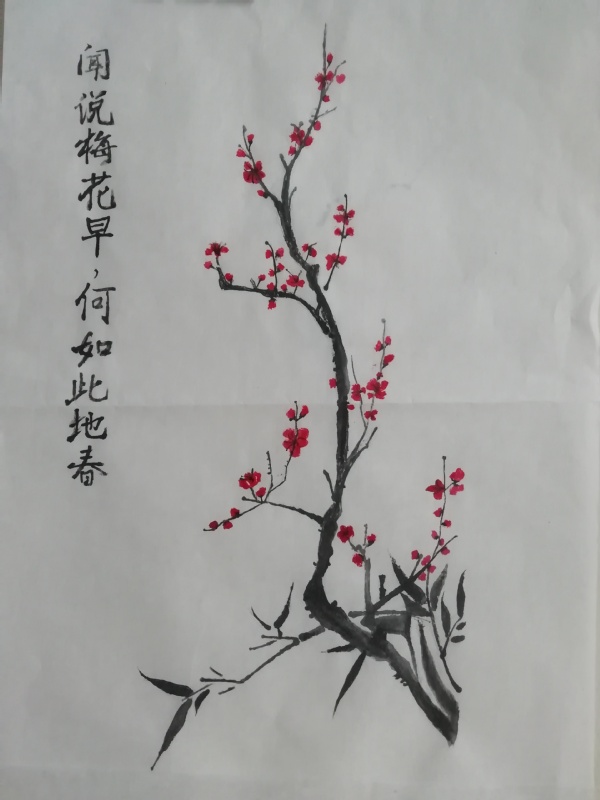 闻说梅花早，何如此地春